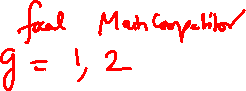 focal Math Competitor
g = 1, 2